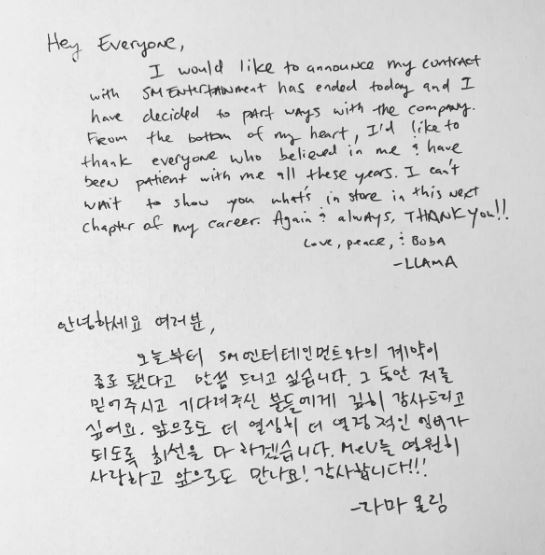 Hey Everyone,
I would like to announce my contract
with SM Entertainment has ended today and I
have decided to part ways with the company.
From the bottom of my heart, I'd like to
thank everyone who believed in me & have
been patient with me all these years. I can't
wait to show you what's in store in this next
chapter of my career. Again & always, THANK YOU!!
Love, peace, & BOBA
-LLAMA
안녕하세요 여러분,
오늘부터 SM엔터테인먼트와의 계약이
종료 됐다고 말씀 드리고 싶습니다. 그 동안 저를
믿어주시고 기다려주신 분들에게 깊히 감사드리고
싶어요. 앞으로도 더 열심히 더 열정 적인 엠버가
되도록 최선을 다 하겠습니다. MeU들 영원히
사랑하고 앞으로도 만나요! 감사합니다!!!
-라마 올림